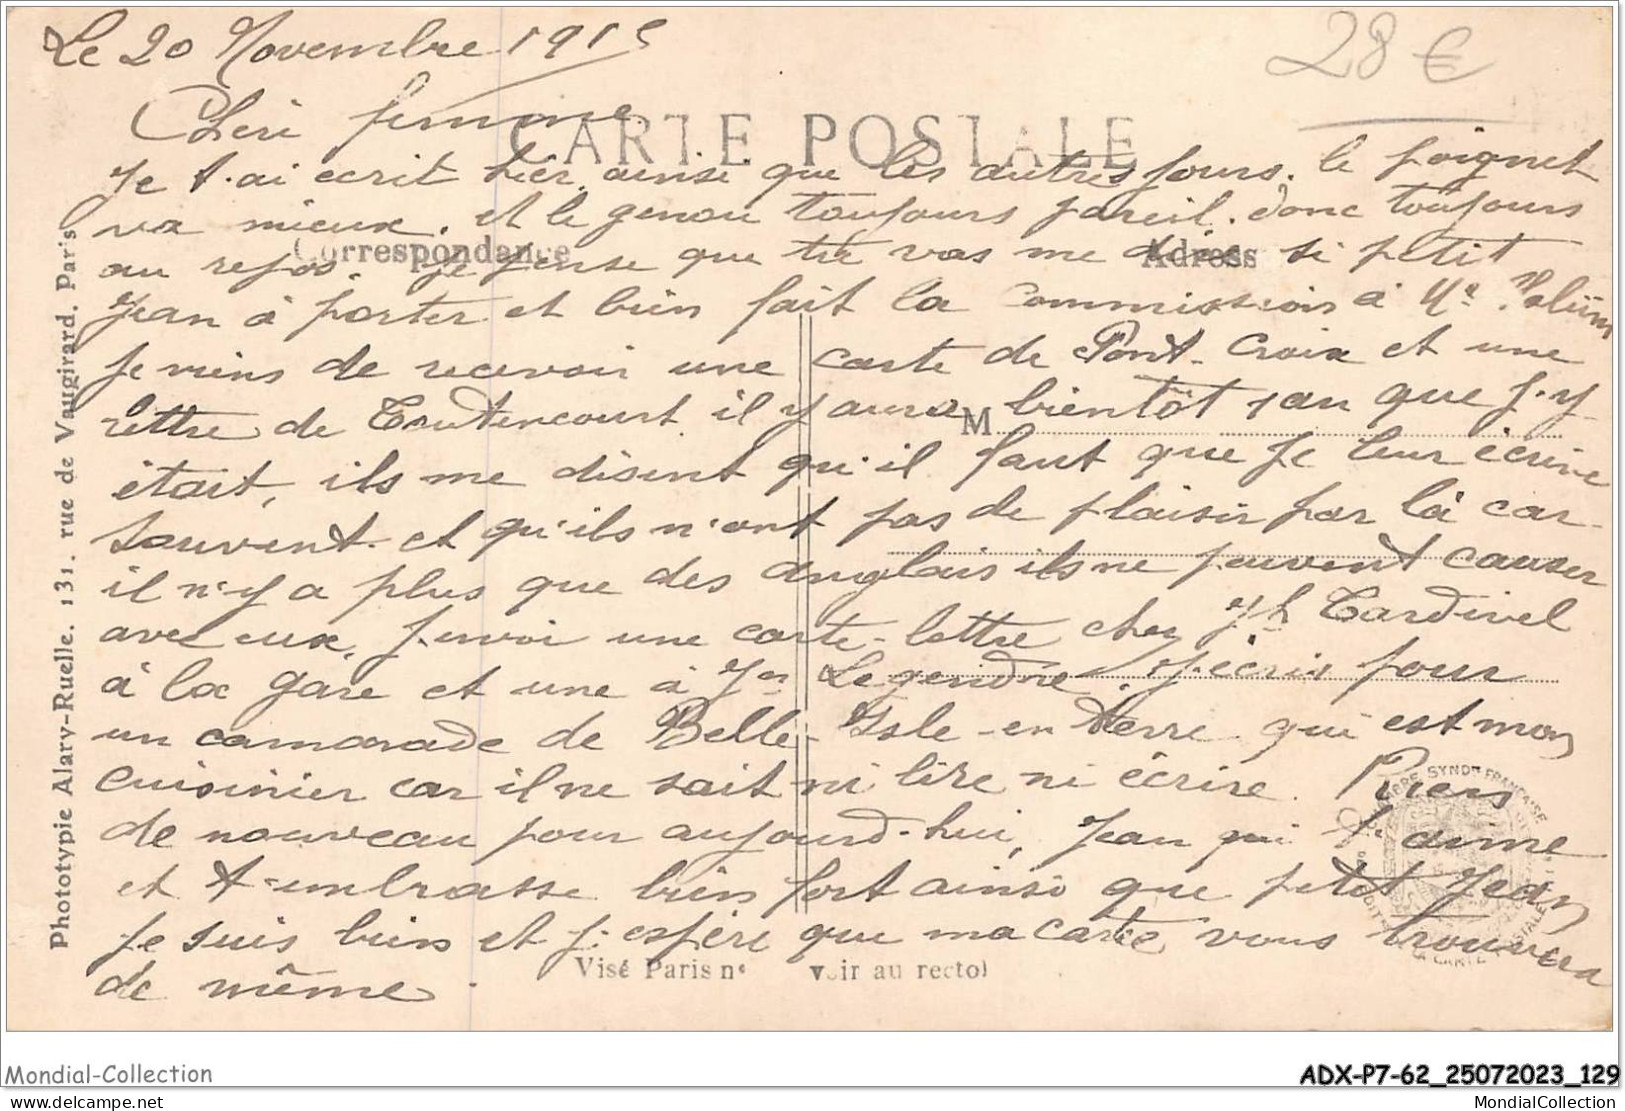 Le 20 Novembre 1915
28 €
Chéri femme
CARTE POSTALE
Je t'ai ecrit hier, ainsi que les autres jours. le poignet
va mieux. et le genou toujours pareil. donc toujours
Correspondance
Adresse
au repos. Je pense que tu vas me dire si petit
Jean à porter et bien fait la commission à
Je viens de recevoir une carte de Pont-Croix et une
lettre de Toutencourt il y aura bientôt 1 an que j'y
M
était, ils me disent qu'il faut que je leur écrive
souvent. et qu'ils n'ont pas de plaisir par là car
il n'y a plus que des anglais ils ne peuvent causer
avec eux, j'envoi une carte-lettre chez Jh Tardivel
à la gare et une à Legendre. j'écris pour
un camarade de Belle-Isle-en-Terre qui est mon
cuisinier car il ne sait ni lire ni écrire. Riens
de nouveau pour aujourd-hui, Jean qui t'aime
et t'embrasse bien fort ainsi que petit Jean
Je suis bien et j'espère que ma carte vous trouvera
de même.
Visé Paris n° voir au recto
Phototypie Alary-Ruelle. 131. rue de Vaugirard. Paris
Mondial-Collection
ADX-P7-62_25072023_129
www.mondialcollection.net
MondialCollection